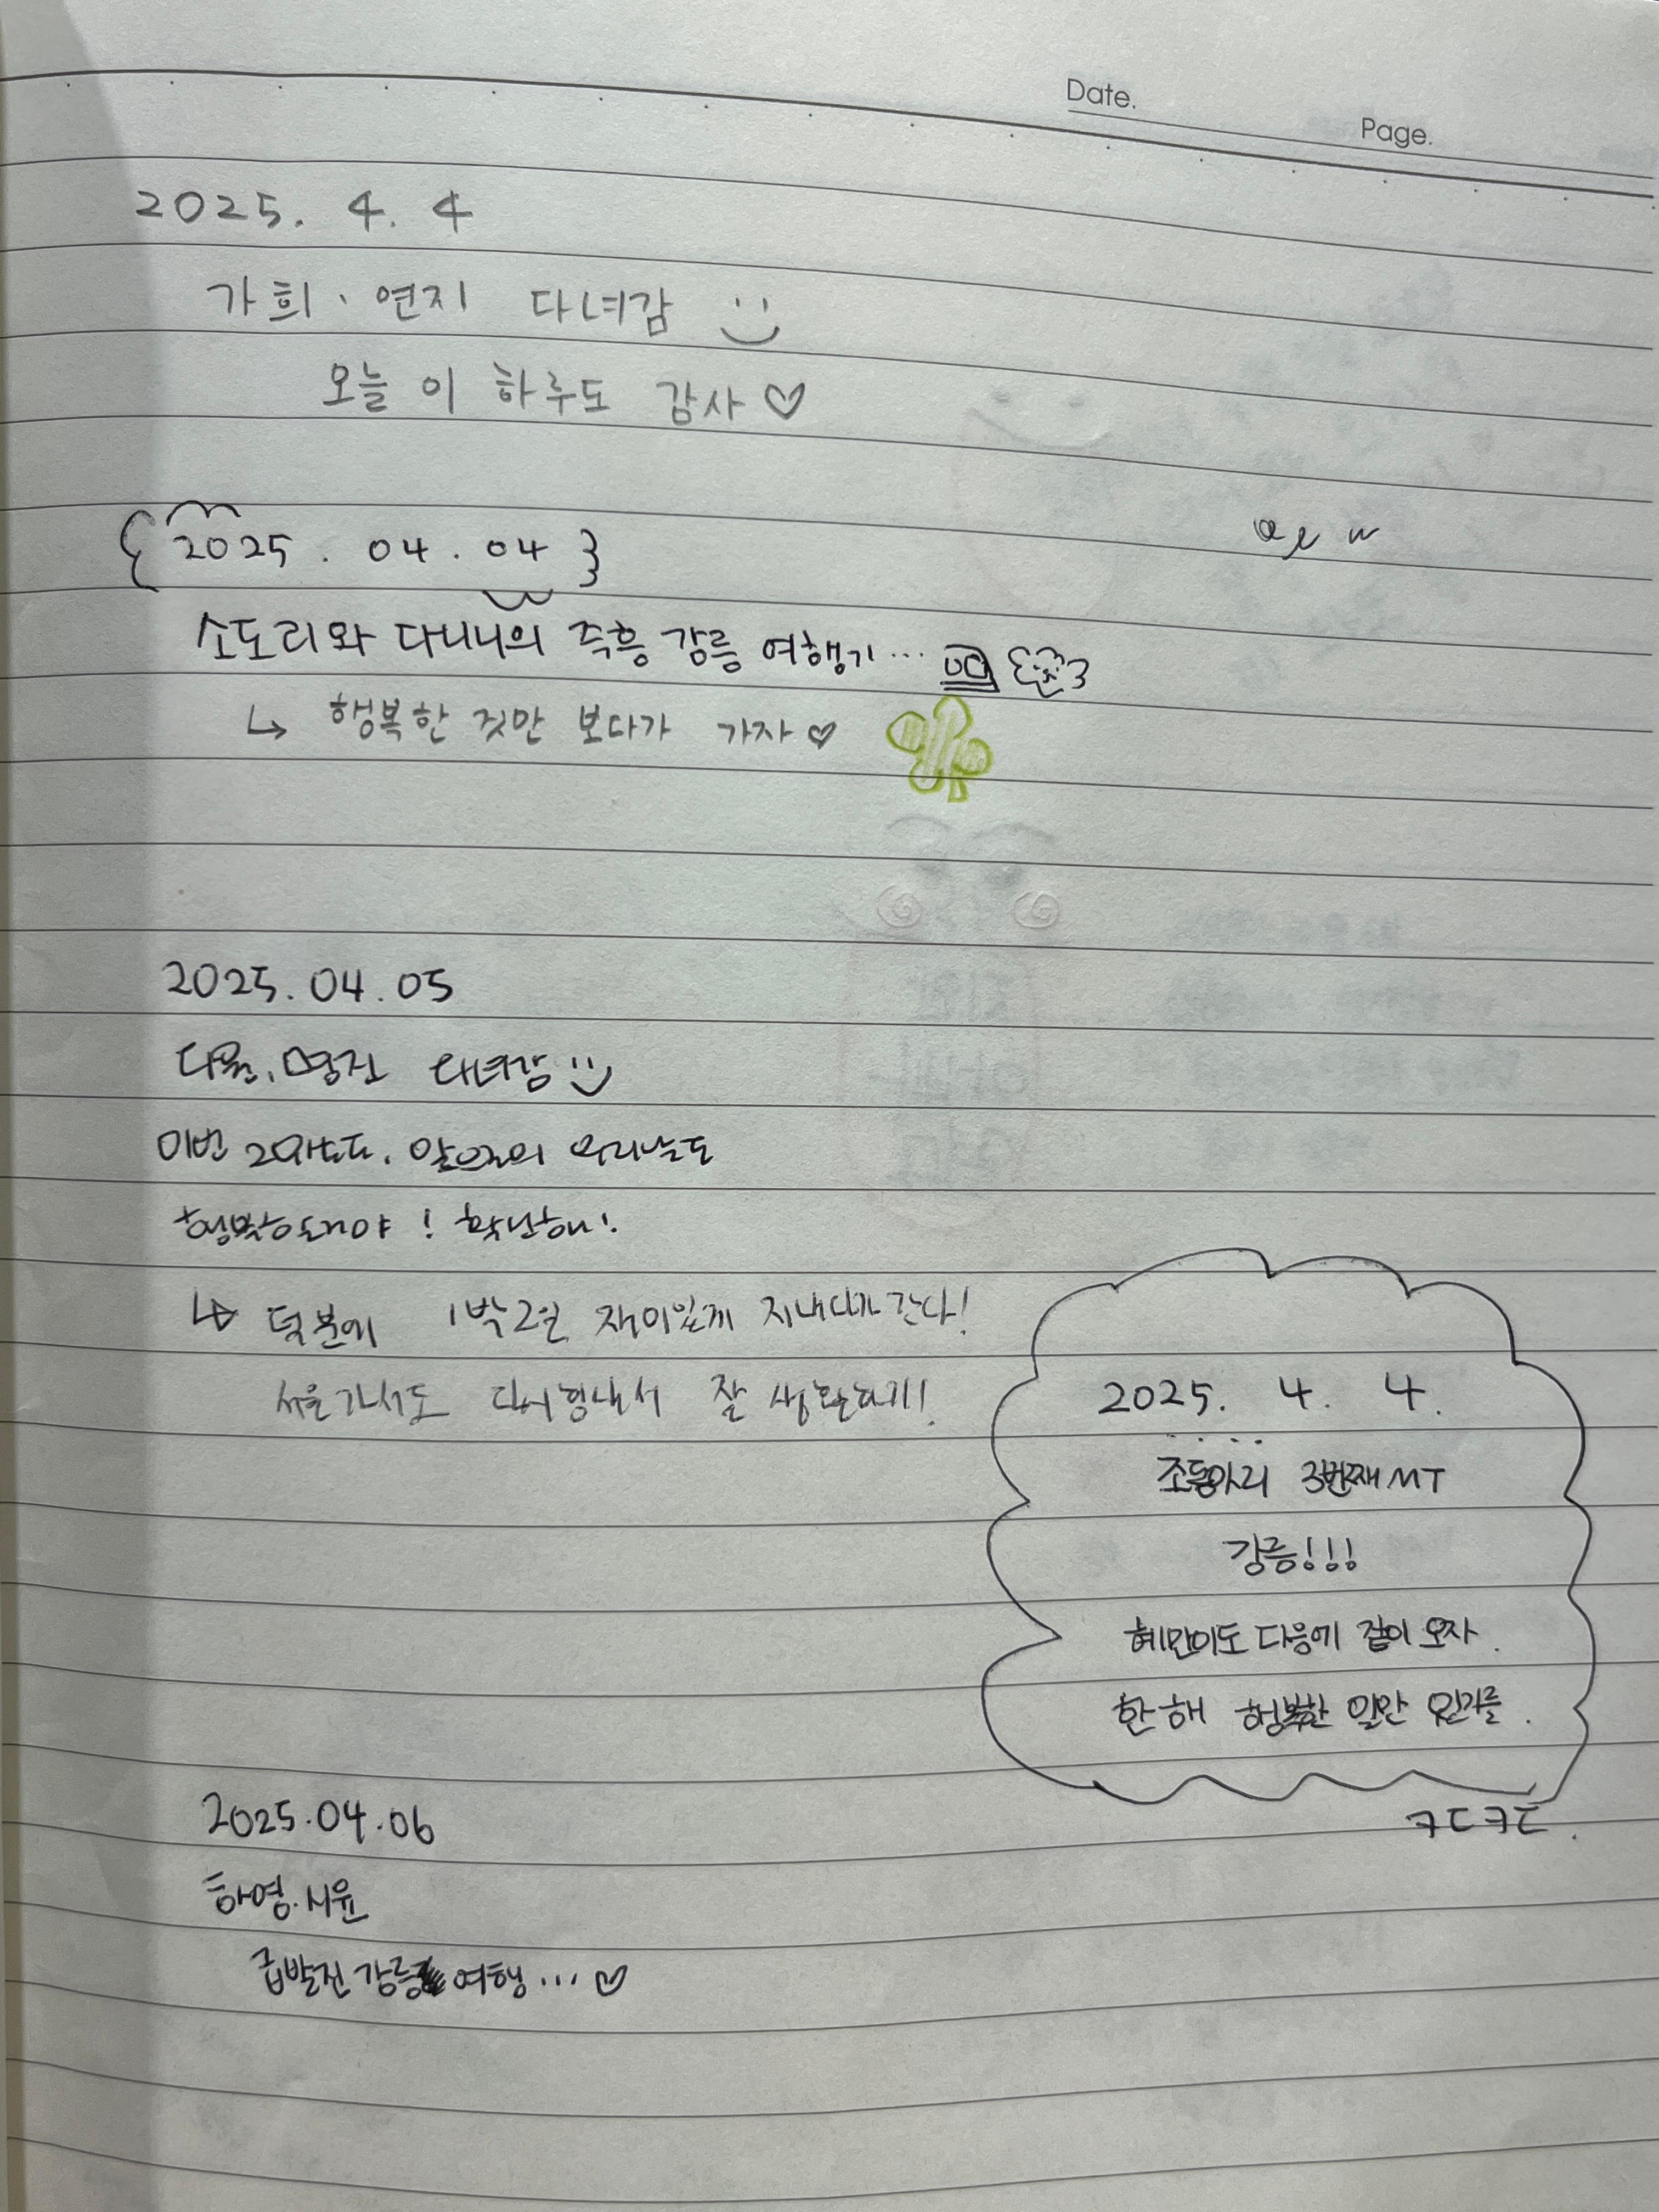 Date.
Page.
2025. 4. 4
가희 · 연지 다녀감
오늘 이 하루도 감사♡
{2025. 04. 04}
소도리와 다니니의 즉흥 강릉 여행기...
↳ 행복한 것만 보다가 가자♡
2025. 04. 05
다원, 명진 다녀감
이번 앞으로의 우리날도
↳ 덕분에 1박2일 재미있게 지내다가 간다!
서울가서도 다시 힘내서 잘 생활하기!
2025. 4. 4.
조동아리 3번째 MT
강릉!!!
혜민이도 다음에 같이 오자.
한 해 행복한 일만 있기를.
ㅋㄷㅋㄷ.
2025.04.06
하영.시윤
급발진 강릉 여행...♡